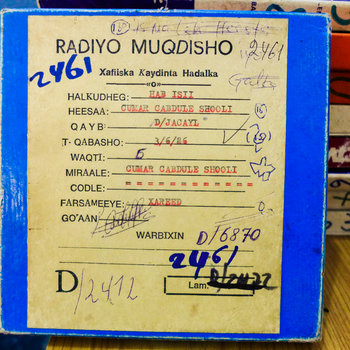 RADIYO MUQDISHO
2461
2461
Xafiiska Kaydinta Hadalka
«O»
HALKUDHEG: HAB ISII
HEESAA: CUMAR CABDULE SHOOLI
QAYB: D/JACAYL
T. QABASHO: 3/6/86
WAQTI: 5
MIRAALE: CUMAR CABDULE SHOOLI
CODLE: " " " " " " " " " " "
FARSAMEEYE: XAREED
GO'AAN:
WARBIXIN D/6870
2461
D/2412
Lam. D/2422